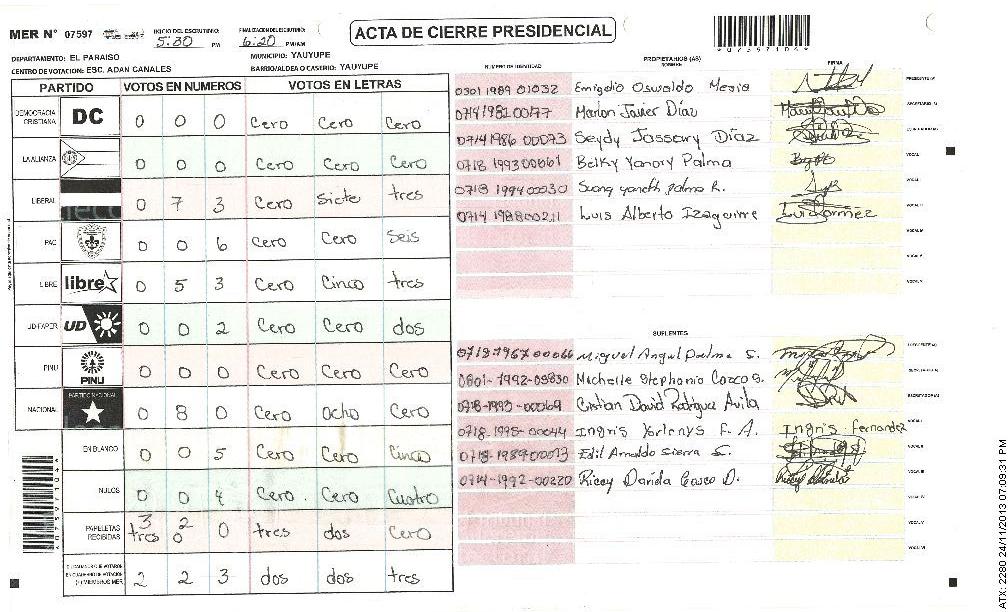 MER N° 07597
INICIO DEL ESCRUTINIO:
5:30 PM
FINALIZACION DEL ESCRUTINIO:
6:20 PM/AM
ACTA DE CIERRE PRESIDENCIAL
DEPARTAMENTO: EL PARAISO
MUNICIPIO: YAUYUPE
CENTRO DE VOTACION: ESC. ADAN CANALES
BARRIO/ALDEA O CASERIO: YAUYUPE
PARTIDO VOTOS EN NUMEROS VOTOS EN LETRAS
DEMOCRACIA CRISTIANA DC 0 0 0 Cero Cero Cero
LA ALIANZA 0 0 0 Cero Cero Cero
LIBERAL 0 7 3 Cero Siete tres
PAC 0 0 6 Cero Cero Seis
LIBRE libre 0 5 3 Cero Cinco tres
UD-FAPER UD 0 0 2 Cero Cero dos
PINU PINU 0 0 0 Cero Cero Cero
NACIONAL PARTIDO NACIONAL 0 8 0 Cero Ocho Cero
EN BLANCO 0 0 5 Cero Cero Cinco
NULOS 0 0 4 Cero Cero Cuatro
PAPELETAS RECIBIDAS 3 tres 2 0 0 tres dos Cero
2 2 3 dos dos tres
NUMERO DE IDENTIDAD
PROPIETARIOS (AS)
NOMBRE
FIRMA
0301 1989 01032 Emigdio Oswaldo Mesia
PRESIDENTE (A)
Marlon Javier Díaz
SECRETARIO (A)
0714 1986 00073 Seydy Jassary Díaz
0718 1993 00061 Belky Yanory Palma
VOCAL I
0718 1994 00030 Suany yaneth palma R.
VOCAL II
0714 1988 00211 Luis Alberto Izaguirre
VOCAL III
VOCAL IV
VOCAL V
SUPLENTES
0718-1967 00066 Miguel Angel palma S.
0801-1992-09830 Michelle Stephania Carcos.
0718-1993-00069 Cristian David Rodriguez Avila
0718-1995-00044 Ingris Yorlenys F. A. Ingris Fernandez
VOCAL I
0718-1989-00013 Edil Arnaldo Sierra S.
VOCAL II
0714-1992-00220 Riccy Danida Casco D.
VOCAL III
VOCAL IV
VOCAL V
VOCAL VI
ATX: 2280 24/11/2013 07:09:31 PM